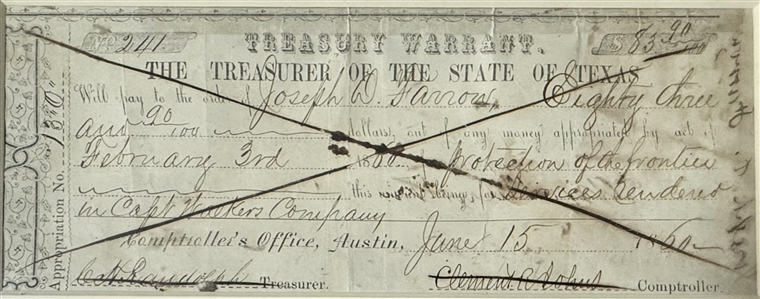 No. 241. TREASURY WARRANT. $83 90/100
THE TREASURER OF THE STATE OF TEXAS
Will pay to the order of Joseph D. Farrow, Eighty three
and 90/100 dollars, out of any money appropriated by act of
February 3rd 1860 protection of the frontier
this warrant being for Services rendered
in Capt Walkers Company
Comptroller's Office, Austin, June 15 1860
C. H. Randolph Treasurer. Clement R. Johns Comptroller.
Appropriation No.